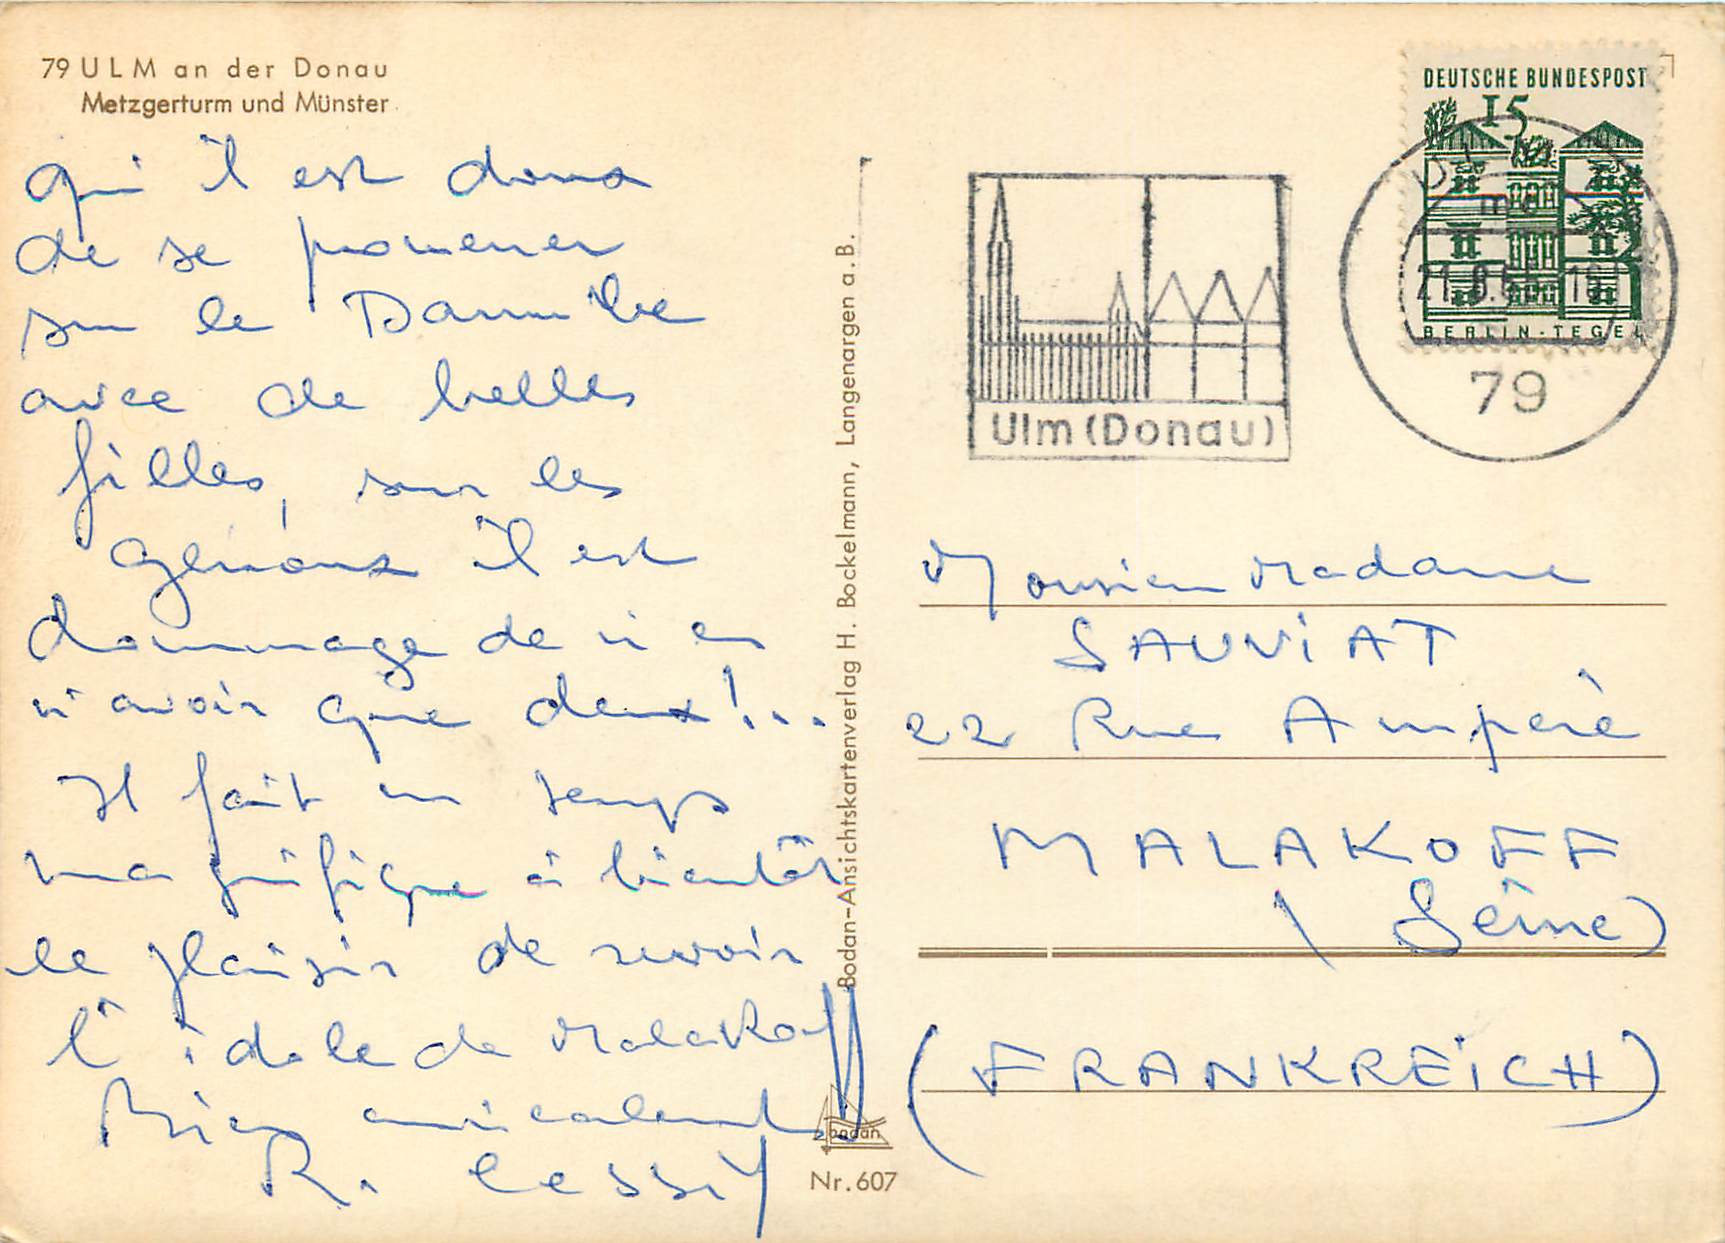 79 ULM an der Donau
Metzgerturm und Münster
qu'il est doux
de se promener
sur le Danube
avec de belles
filles, sur les
genoux il est
dommage de n'en
n'avoir que deux!...
Il fait un temps
magnifique à bientôt
le plaisir de revoir
l'idole de Malakoff
Bien amicalement
R. Cessy
Bodan-Ansichtskartenverlag H. Bockelmann, Langenargen a.B.
bodan
Nr. 607
DEUTSCHE BUNDESPOST
15
BERLIN-TEGEL
79
Ulm (Donau)
Monsieur Madame
SAUVIAT
22 Rue Ampère
MALAKOFF
(Seine)
(FRANKREICH)